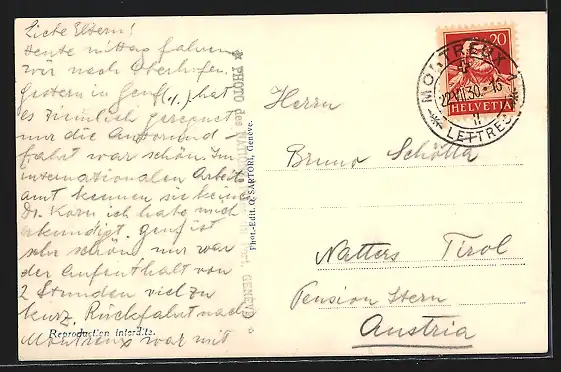 Liebe Eltern!
Heute mittag fahren
wir nach Oberhofen.
Gestern in Genf (.,.) hat
es ziemlich geregnet
nur die Auto und
fahrt war schön. Im
internationalen Arbeits
amt kennen sie keinen
Dr. Korn ich habe mich
erkundigt. Genf ist
sehr schön nur war
der Aufenthalt von
2 Stunden viel zu
kurz. Rückfahrt nach
Montreux war mit
Reproduction interdite.
* PHOTO des NATIONS GENÈVE *
Phot.-Edit. O. SARTORI, Genève.
20
HELVETIA
MONTREUX 2
22.VII.30.-16
LETTRES
Herrn
Bruno Schötta
Natters Tirol
Pension Stern
Austria